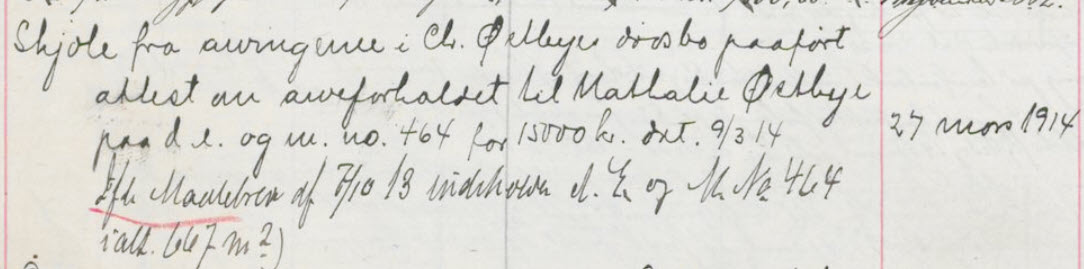 Skjøte fra arvingene i Chr. Østbyes dødsbo paaført
attest om arveforholdet til Nathalie Østbye
paa d. e. og m. no. 464 for 15000 kr. dat. 9/3 14
27 mars 1914
Ifl. Maalebrev af 7/10 13 indeholder d. E. og M. No 464
ialt. 667 m²)